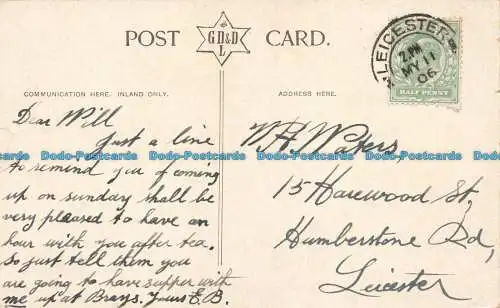 POST CARD.
GD&D
L
COMMUNICATION HERE. INLAND ONLY.
ADDRESS HERE.
LEICESTER
2 PM
MY 11
06
HALF PENNY
Dear Will
Just a line
to remind you of coming
up on sunday shall be
very pleased to have an
hour with you after tea.
So just tell them you
are going to have supper with
me up at Brays. Yours E.B.
W H Waters
15 Harewood St,
Humberstone Rd,
Leicester
Dodo-Postcards Dodo-Postcards Dodo-Postcards Dodo-Postcards Dodo-Postcards
Dodo-Postcards Dodo-Postcards Dodo-Postcards Dodo-Postcards Dodo-Postcards